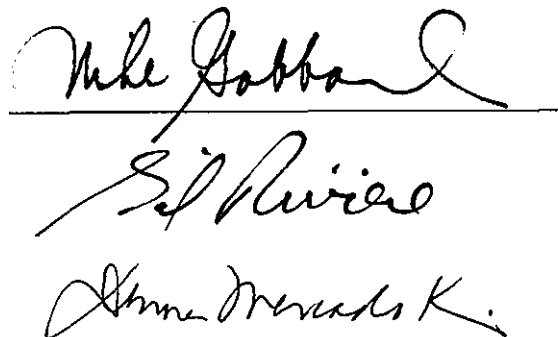 Mike Gabbard
Gil Riviere
Donna Mercado K.